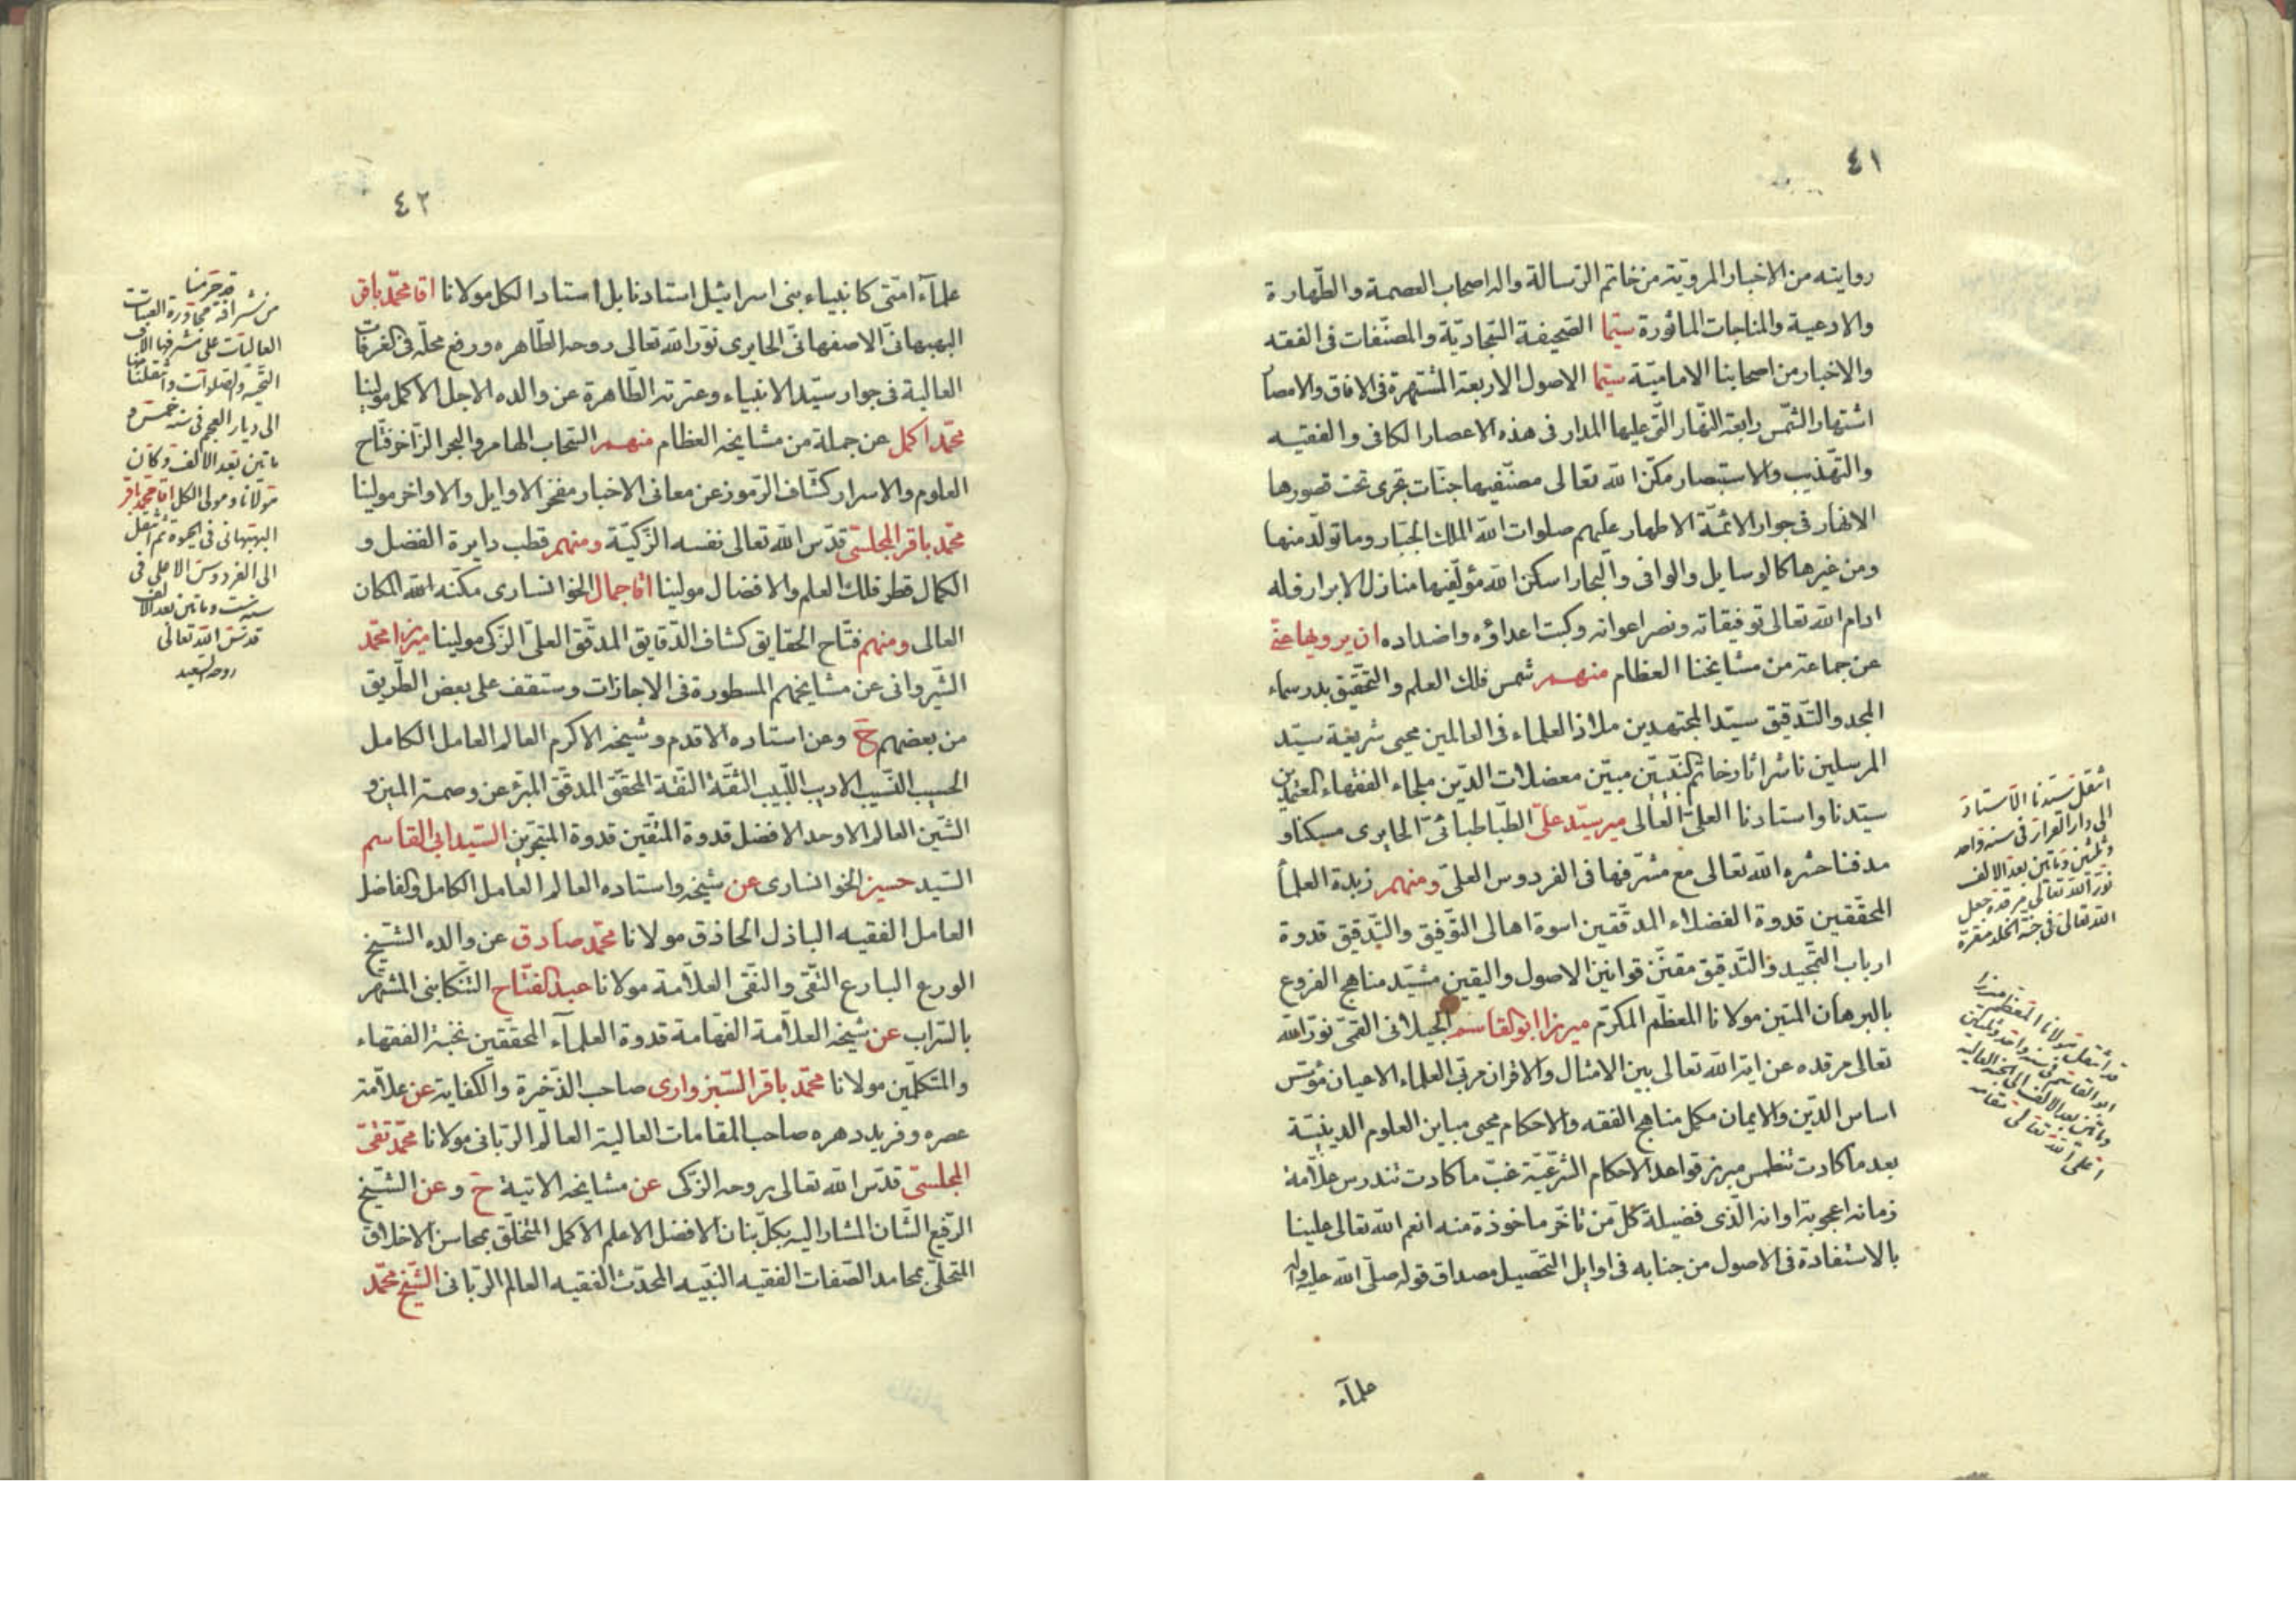 ٤١
روايته من الاخبار المرويّة من خاتم الرّسالة واله اصحاب العصمة والطّهارة
والادعية والمناجات الماثورة سيّما الصّحيفة السّجاديّة والمصنّفات فى الفقه
والاخبار من اصحابنا الاماميّة سيّما الاصول الاربعة المشتهرة فى الافاق والامصا
اشتهار الشّمس رابعة النّهار الّتى عليها المدار فى هذه الاعصار الكافى والفقيه
والتّهذيب والاستبصار مكّن الله تعالى مصنّفيها جنّات تجرى تحت قصورها
الانهار فى جوار الائمّة الاطهار عليهم صلوات الله الملك الجبّار وما تولّد منها
ومن غيرها كالوسايل والوافى والبحار اسكن الله مؤلّفيها منازل الابرار فله
ادام الله تعالى توفيقاته ونصر اعوانه وكبت اعداؤه واضداده ان يرويها عنّى
عن جماعة من مشايخنا العظام منهم شمس فلك العلم والتّحقيق بدر سماء
المجد والتّدقيق سيّد المجتهدين ملاذ العلماء فى العالمين محيى شريعة سيّد
المرسلين ناشر اثار خاتم النّبيّين مبيّن معضلات الدّين ملجاء الفقهاء المعتمدين
سيّدنا واستادنا العلىّ العالى مير سيّد علىّ الطّباطبائىّ الحايرى مسكنا و
مدفنا حشره الله تعالى مع مشرّفها فى الفردوس العلىّ ومنهم زبدة العلمأ
المحقّقين قدوة الفضلاء المدقّقين اسوة اهالى التّوفيق والتّدقيق قدوة
ارباب التّمجيد والتّدقيق مقنّن قوانين الاصول واليقين مشيّد مناهج الفروع
بالبرهان المتين مولانا المعظّم المكرّم ميرزا ابو القاسم الجيلانى القمّى نوّر الله
تعالى مرقده عن اية الله تعالى بين الامثال والاقران مربّى العلماء الاعيان مؤسّس
اساس الدّين والايمان مكمل مناهج الفقه والاحكام محيى مباين العلوم الدينيّة
بعد ما كادت تنطمس مبرز قواعد الاحكام الشّرعيّة غبّ ما كادت تندرس علّامة
زمانه اعجوبة اوانه الّذى فضيلة كلّ من تاخّر ماخوذة منه انعم الله تعالى علينا
بالاستفادة فى الاصول من جنابه فى اوايل التّحصيل مصداق قوله صلّى الله عليه واله
علمآء
انتقل سيّدنا الاستاد
الى دار القرار فى سنة واحد
وثلثين ومأتين بعد الالف
نوّر الله تعالى مرقده جعل
الله تعالى فى جنّة الخلد مقرّه
قد انتقل مولانا المعظم ميرزا
ابو القاسم فى سنة واحد وثلثين
ومأتين بعد الالف الى الجنة العالية
اعلى الله تعالى مقامه
٤٢
علمآء امّتى كانبياء بنى اسرائيل استادنا بل استاد الكل مولانا اقا محمّد باقر
البهبهانىّ الاصفهانىّ الحايرى نوّر الله تعالى روحه الطّاهره ورفع محلّه فى الغرفات
العالية فى جوار سيّد الانبياء وعترته الطّاهرة عن والده الاجل الاكمل مولينا
محمّد اكمل عن جملة من مشايخه العظام منهم السّحاب الهامر والبحر الزّاخر فتّاح
العلوم والاسرار كشّاف الرّموز عن معانى الاخبار مفخر الاوايل والاواخر مولينا
محمّد باقر المجلسىّ قدّس الله تعالى نفسه الزّكيّة ومنهم قطب دايرة الفضل و
الكمال قطر فلك العلم والافضال مولينا اقا جمال الخوانسارى مكّنه الله المكان
العالى ومنهم فتّاح الحقايق كشاف الدّقايق المدقّق العلىّ الزّكى مولينا ميرزا محمّد
الشّيروانى عن مشايخهم المسطورة فى الاجازات وستقف على بعض الطّريق
من بعضهم ح وعن استاده الاقدم وشيخه الاكرم العالم العامل الكامل
الحسيب النّسيب الاديب اللّبيب الثّقة النّقة المحقّق المدقّق المبرّء عن وصمة المين و
الشّين العالم الاوحد الافضل قدوة المتّقين قدوة المتبحّرين السّيد ابى القاسم
السّيد حسين الخوانسارى عن شيخه واستاده العالم العامل الكامل والفاضل
العامل الفقيه الباذل الحاذق مولانا محمّد صادق عن والده الشّيخ
الورع البارع التّقى والنّقى العلّامة مولانا عبد الفتّاح التّنكابنى المشتهر
بالسّراب عن شيخه العلّامة الفهّامة قدوة العلمآء المحقّقين نخبة الفقهاء
والمتكلّمين مولانا محمّد باقر السّبزوارى صاحب الذّخيرة والكفاية عن علّامة
عصره وفريد دهره صاحب المقامات العالية العالم الرّبانى مولانا محمّد تقىّ
المجلسىّ قدّس الله تعالى بروحه الزّكى عن مشايخه الاتية ح وعن الشّيخ
الرّفيع الشّان المشار اليه بكلّ بنان الافضل الاعلم الاكمل المتخلّق بمحاسن الاخلاق
المتحلّى بمحامد الصّفات الفقيه النّبيه المحدّث الفقيه العالم الرّبانى الشّيخ محمّد
قد حرمنا
من شرافة مجاورة العتبات
العاليات على مشرفها الاف
التّحية والصلوات وانتقلنا
الى ديار العجم فى سنة خمسة
ماتين بعد الالف وكان
مولانا ومولى الكل اقا محمّد باقر
البهبهانى فى الحيوة ثم انتقل
الى الفردوس الاعلى فى
سنة ست وماتين بعد الالف
قدّس الله تعالى
روحه السعيد